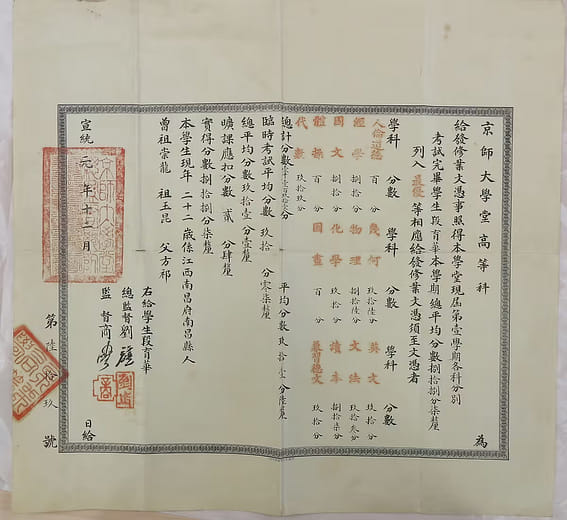 京師大學堂高等科
為
給發修業文憑事照得本學堂現屆第壹學期各科分別
考試完畢學生段育華本學期總平均分數捌拾捌分柒釐
列入最優等相應給發修業文憑須至文憑者
學科 分數 學科 分數 學科 分數
人倫道德 百分 幾何 玖拾陸分 英文 玖拾分
經學 捌拾分 物理 捌拾陸分 文法 玖拾叁分
國文 捌拾分 化學 玖拾分 讀本 捌拾柒分
體操 百分 圖畫 百分 兼習德文 玖拾分
代數 玖拾玖分
總計分數 平均分數玖拾壹分陸釐
臨時考試平均分數玖拾分零柒釐
總平均分數玖拾壹分壹釐
曠課應扣分數貳分肆釐
實得分數捌拾捌分柒釐
本學生現年二十二歲係江西南昌府南昌縣人
曾祖崇龍 祖玉昆 父方祁
右給學生段育華
總監督劉
監督商
宣統元年十二月 日給
第陸拾玖號